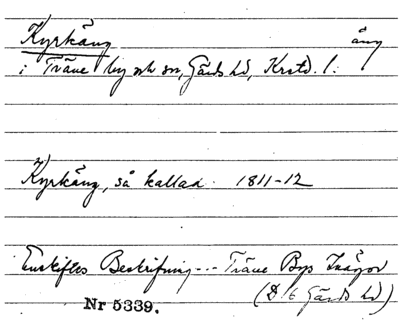 Kyrkäng äng
i Träne by och sn, Gärds hd, Krstd. l.
Kyrkäng, så kallad. 1811-12
Enskiftes Beskrifning --- Träne Bys Inägor
(D 6 Gärds hd)
Nr 5339.